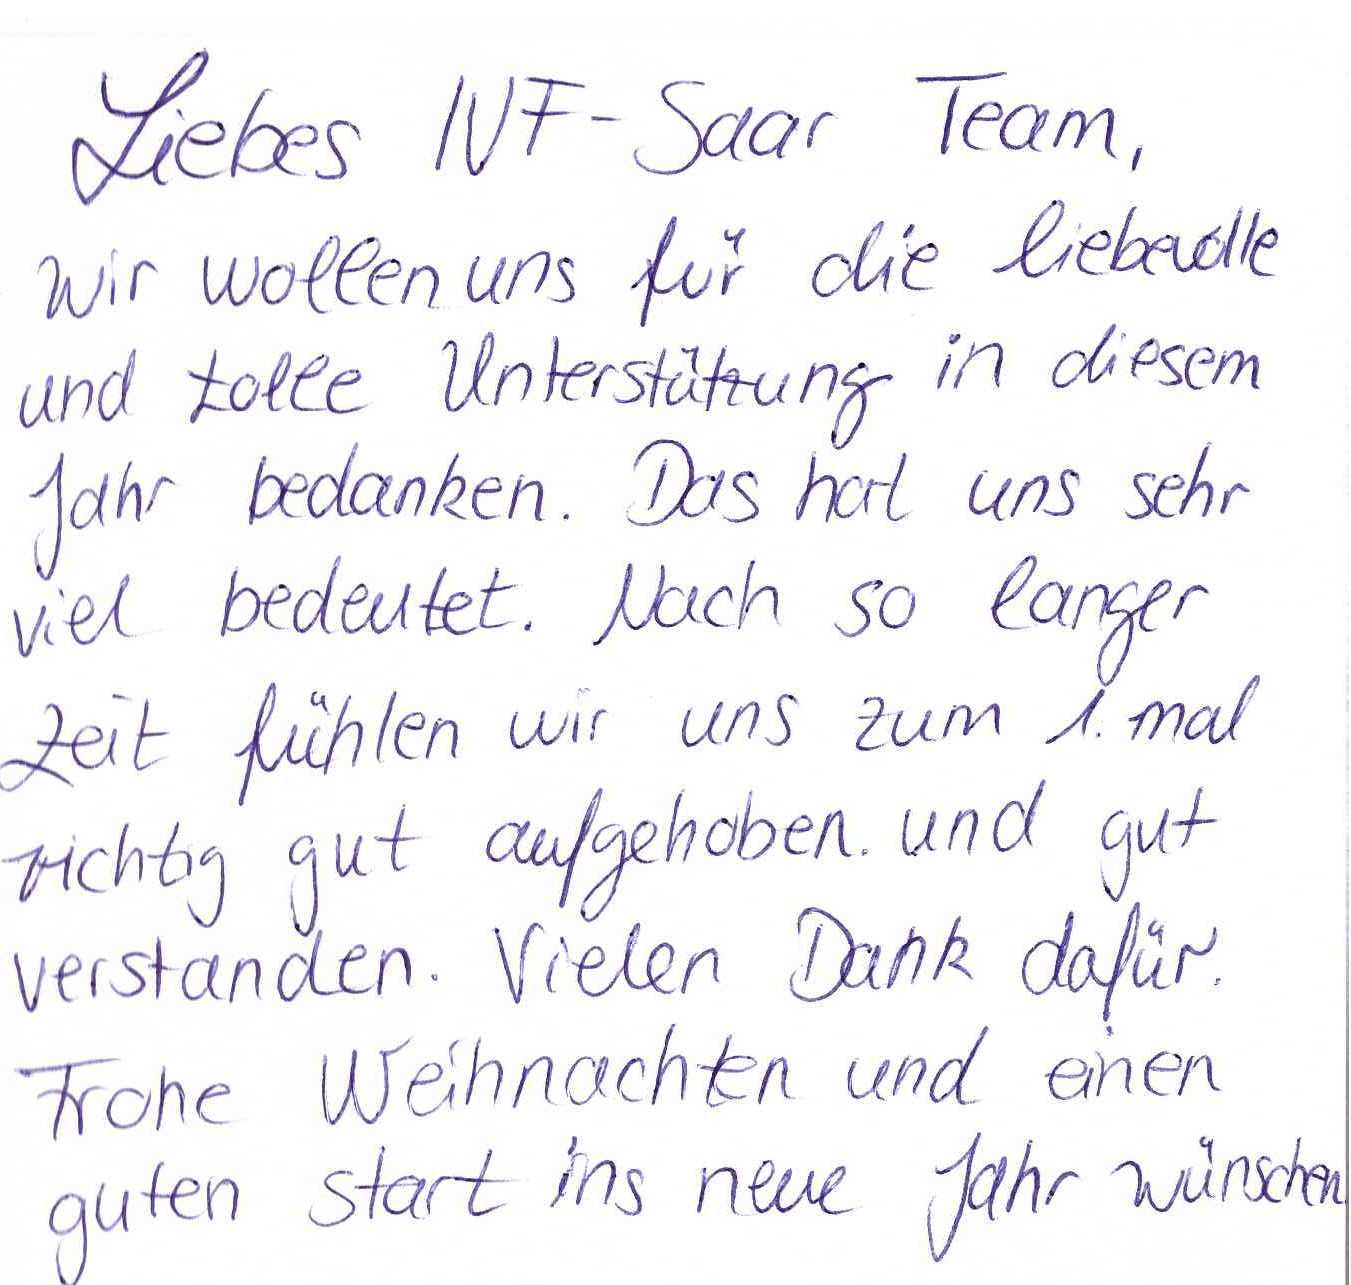 Liebes IVF-Saar Team,
wir wollen uns für die liebevolle
und tolle Unterstützung in diesem
Jahr bedanken. Das hat uns sehr
viel bedeutet. Nach so langer
Zeit fühlen wir uns zum 1. mal
richtig gut aufgehoben. und gut
verstanden. Vielen Dank dafür.
Frohe Weihnachten und einen
guten start ins neue Jahr wünschen